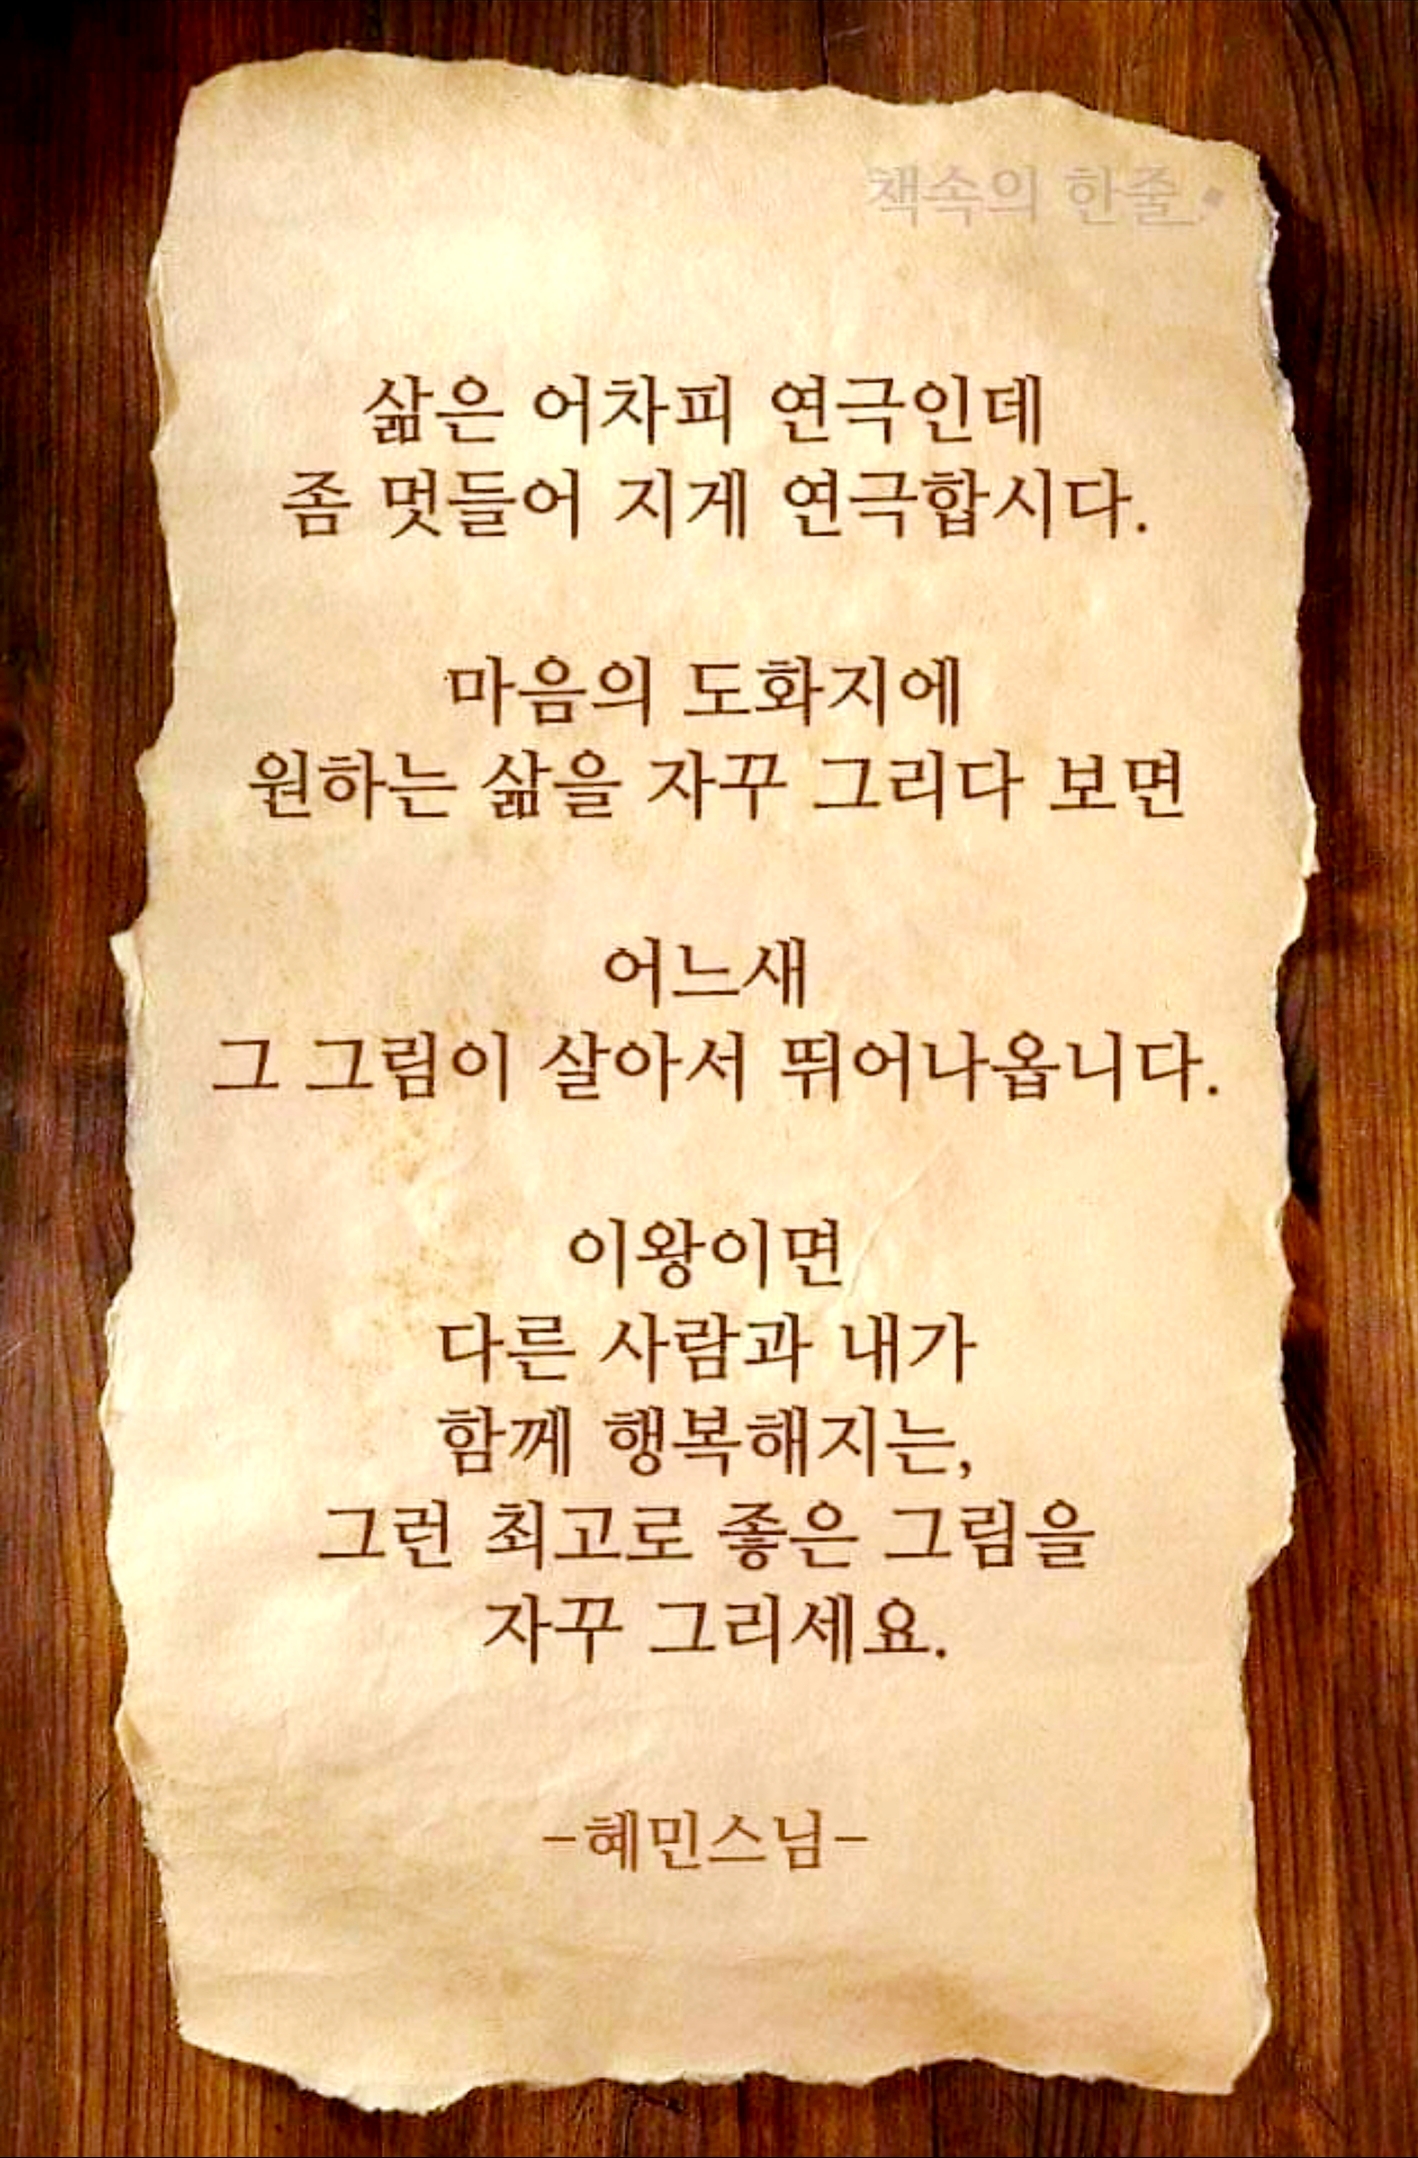 책속의 한줄
삶은 어차피 연극인데
좀 멋들어 지게 연극합시다.
마음의 도화지에
원하는 삶을 자꾸 그리다 보면
어느새
그 그림이 살아서 뛰어나옵니다.
이왕이면
다른 사람과 내가
함께 행복해지는,
그런 최고로 좋은 그림을
자꾸 그리세요.
-혜민스님-